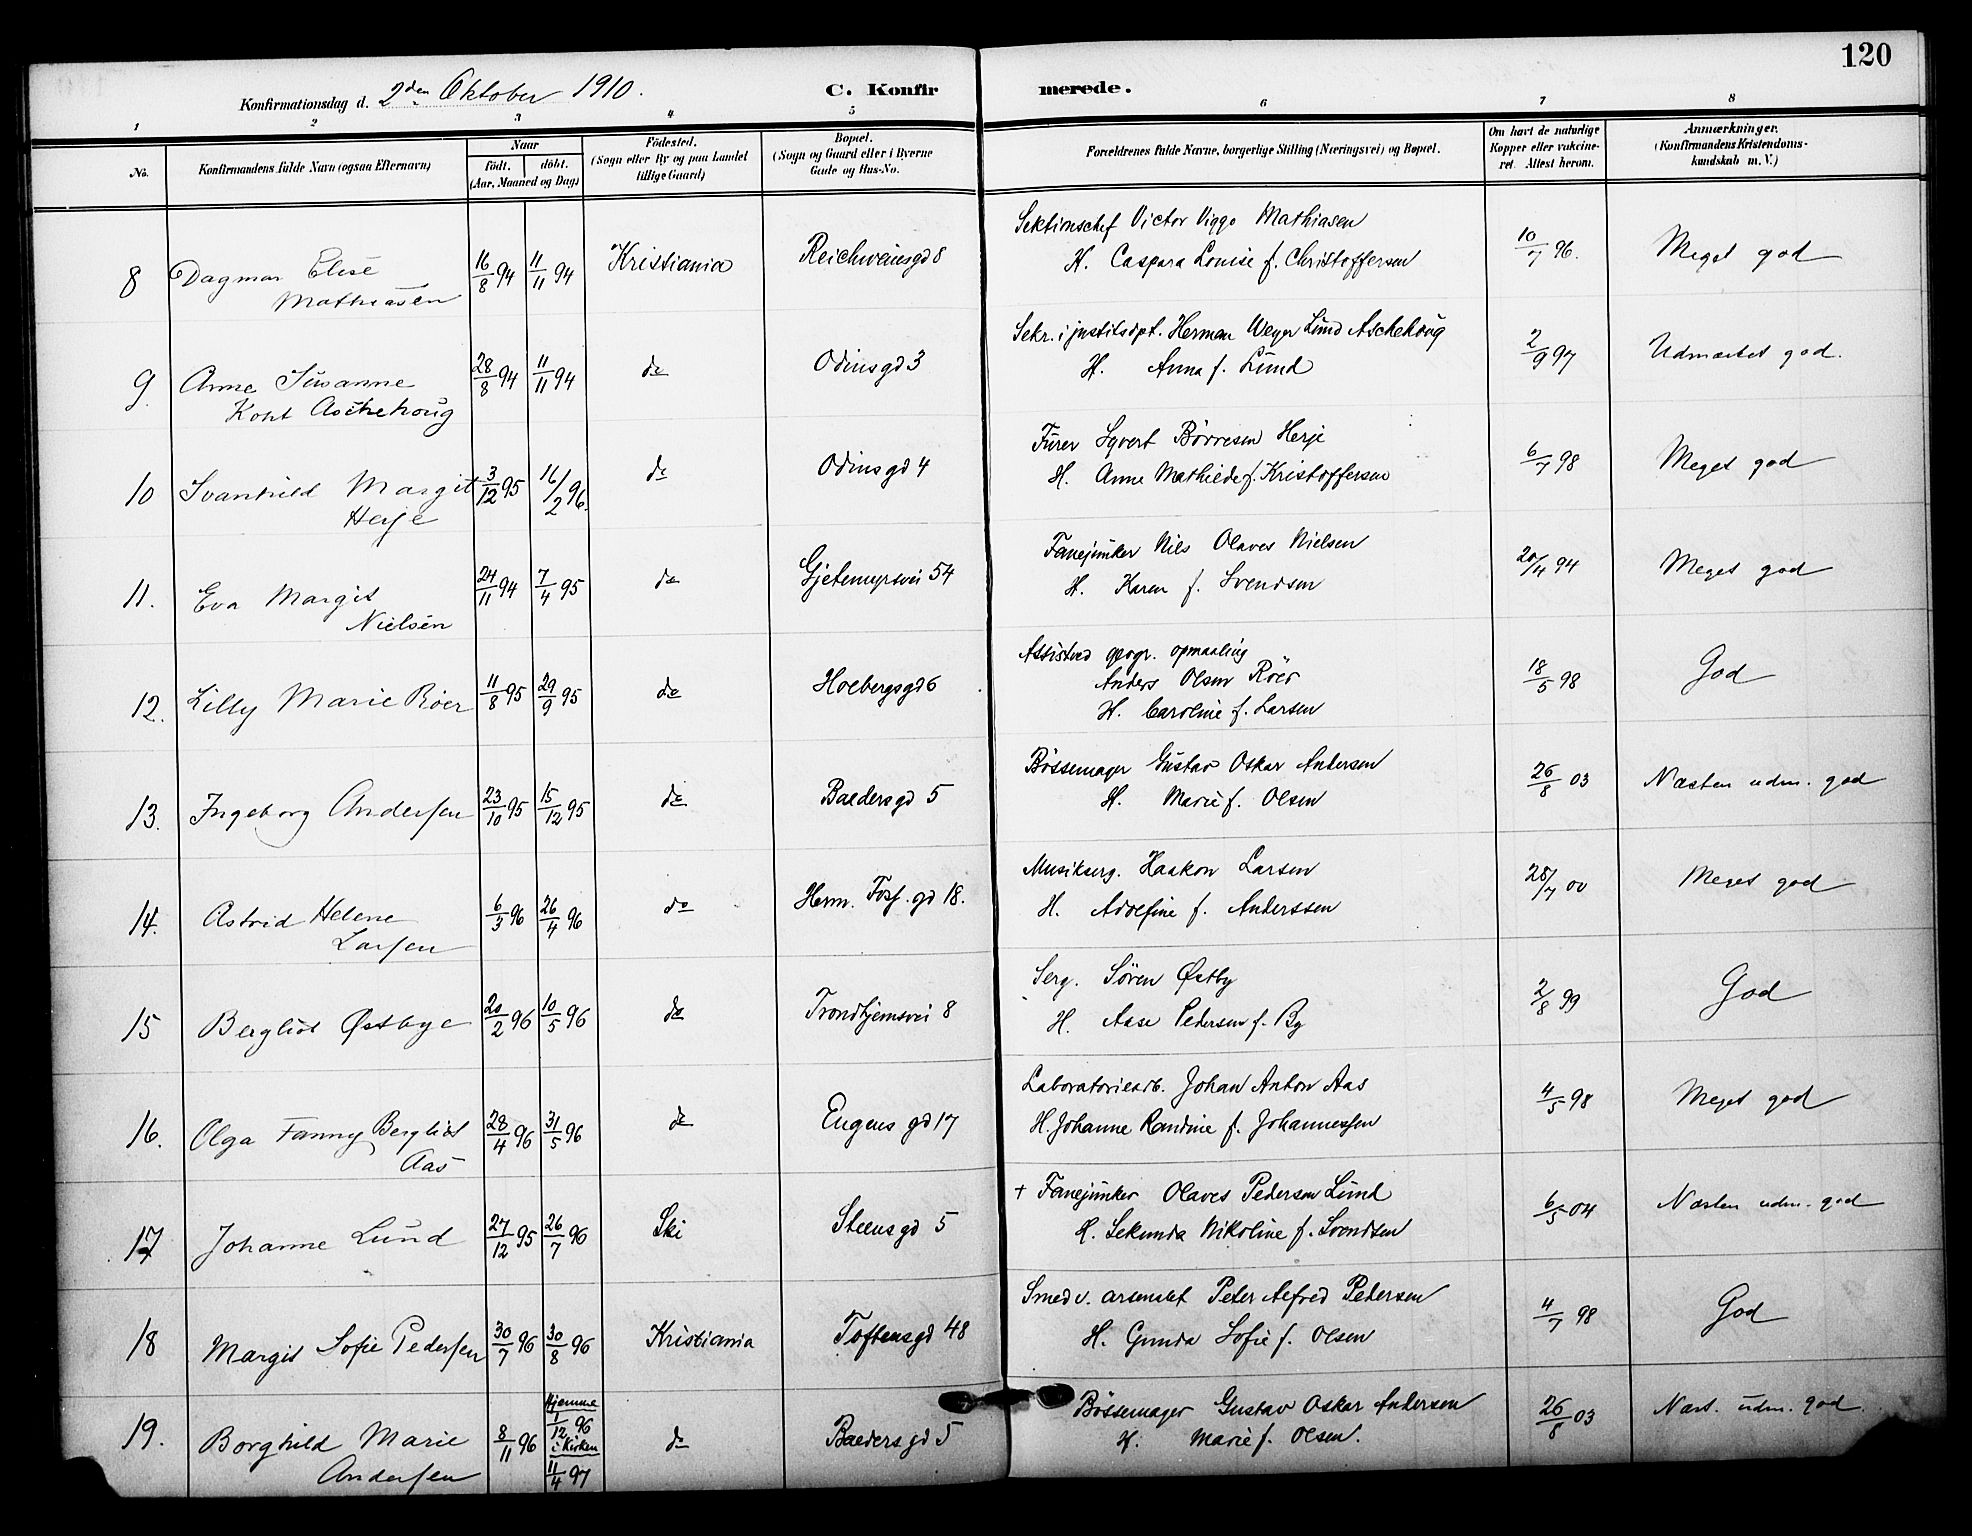 120
Konfirmationsdag d. 2den Oktober 1910.
C. Konfirmerede.
1 2 3 4 5 6 7 8
No.
Konfirmandens fulde Navn (ogsaa Efternavn)
Naar
født. døbt.
(Aar, Maaned og Dag)
Fødested.
(Sogn eller By og paa Landet
tillige Gaard)
Bopæl.
(Sogn og Gaard eller i Byerne
Gade og Hus-No.
Forældrenes fulde Navne, borgerlige Stilling (Næringsvei) og Bopæl.
Om havt de naturlige
Kopper eller vakcine-
ret. Attest herom.
Anmærkninger.
(Konfirmandens Kristendoms-
kundskab m. V.)
8 Dagmar Elise
Mathiasen
16/8 94 11/11 94 Kristiania Reichweinsgd 8
Sektionschef Victor Viggo Mathiasen
H. Caspara Louise f. Christoffersen
10/7 96. Meget god
9. Anne Susanne
Koht Aschehoug
28/8 94 11/11 94 do Odinsgd 3
Sekr. i justitsdpt. Herman Weyer Lund Aschehoug
H. Anna f. Lund
2/9 97 Udmærket god.
10 Svanhild Margit
Herje
3/12 95 16/2 96. do Odinsgd 4
Furer Syvert Børresen Herje
H. Anne Mathilde f. Kristoffersen
6/7 98 Meget god
11. Eva Margit
Nielsen
24/11 94 7/4 95 do Gjetemyrsvei 54
Fanejunker Nils Olaves Nielsen
H. Karen f. Svendsen
20/11 94 Meget god
12. Lilly Marie Røer
11/8 95 29/9 95 do Holbergsgd 6
Assist. ved geogr. opmaaling
Anders Olsen Røer
H. Caroline f. Larsen
18/5 98 God
13. Ingeborg Andersen
23/10 95 15/12 95 do Baldersgd 5
Bøssemager Gustav Oskar Andersen
H. Marie f. Olsen
26/8 03 Næsten udm. god
14. Astrid Helene
Larsen
6/3 96 26/4 96 do Herm. Fosf. gd 18.
Musikserg. Haakon Larsen
H. Adolfine f. Anderssen
28/7 00 Meget god
15 Bergliot Østbye
20/2 96 10/5 96 do Trondhjemsvei 8
Serg. Søren Østby
H. Aase Pedersen f. By
2/8 99 God
16. Olga Fanny Bergliot
Aas
28/4 96 31/5 96 do Eugens gd 17
Laboratoriearb. Johan Anton Aas
H. Johanne Randine f. Johannessen
4/5 98 Meget god
17 Johanne Lund
27/12 95 26/7 96 Ski Steensgd 5
+ Fanejunker Olaves Pedersen Lund
H. Sekunda Nikoline f. Svendsen
6/5 04 Næsten udm. god
18 Margit Sofie Pedersen
30/7 96 30/8 96 Kristiania Toftensgd 48
Smed v. arsenalet Peter Alfred Pedersen
H. Gunda Sofie f. Olsen
4/7 98 God
19. Borghild Marie
Andersen
8/11 96 Hjemme
1/12 96
i Kirken
11/4 97
do Baldersgd 5
Bøssemager Gustav Oskar Andersen
H. Marie f. Olsen.
26/8 03 Næst. udm. god.